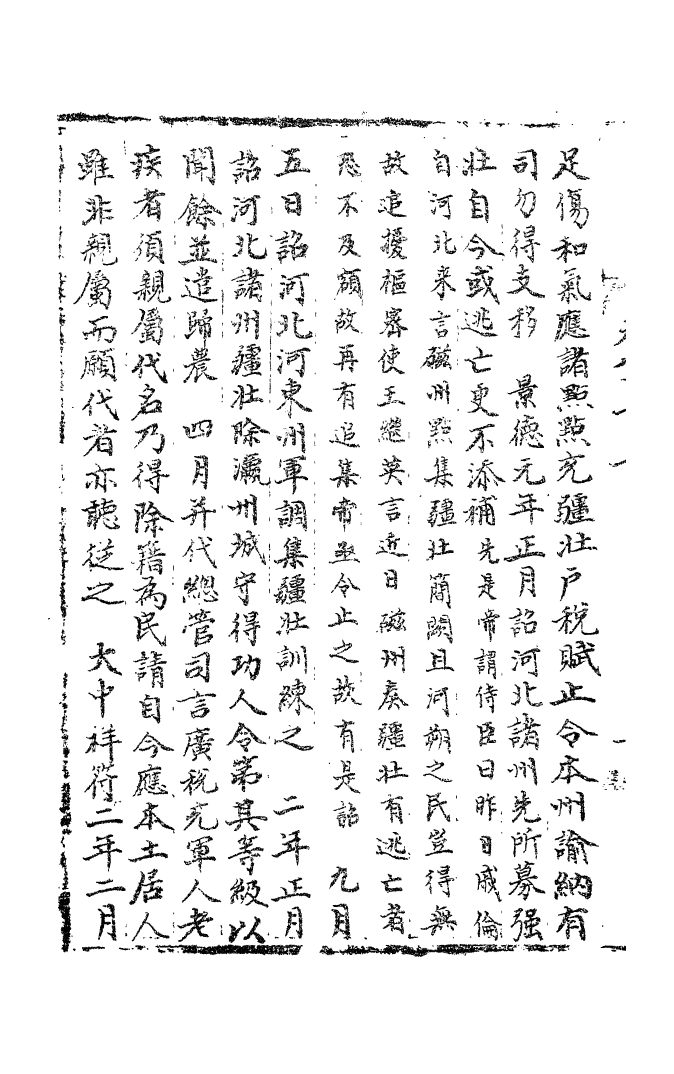 足傷和氣應諸㸃㸃充疆壯戶稅賦止令本州諭納有
司勿得支移　景德元年正月詔河北諸州先所募强
壯自今或逃亡更不添補先是帝謂侍臣曰昨日戚倫
自河北來言磁州㸃集疆壯簡閱且河朔之民豈得無
故追擾樞密使王繼英言近日磁州奏疆壯有逃亡者
恐不及額故再有追集帝亟令止之故有是詔　九月
五日詔河北河東州軍調集疆壯訓練之　二年正月
詔河北諸州疆壯除瀛州城守得功人令第其等級以
聞餘並遣歸農　四月并代總管司言廣稅充軍人老
疾者須親屬代名乃得除籍為民請自今應本土居人
雖非親屬而願代者亦聽從之　大中祥符二年二月